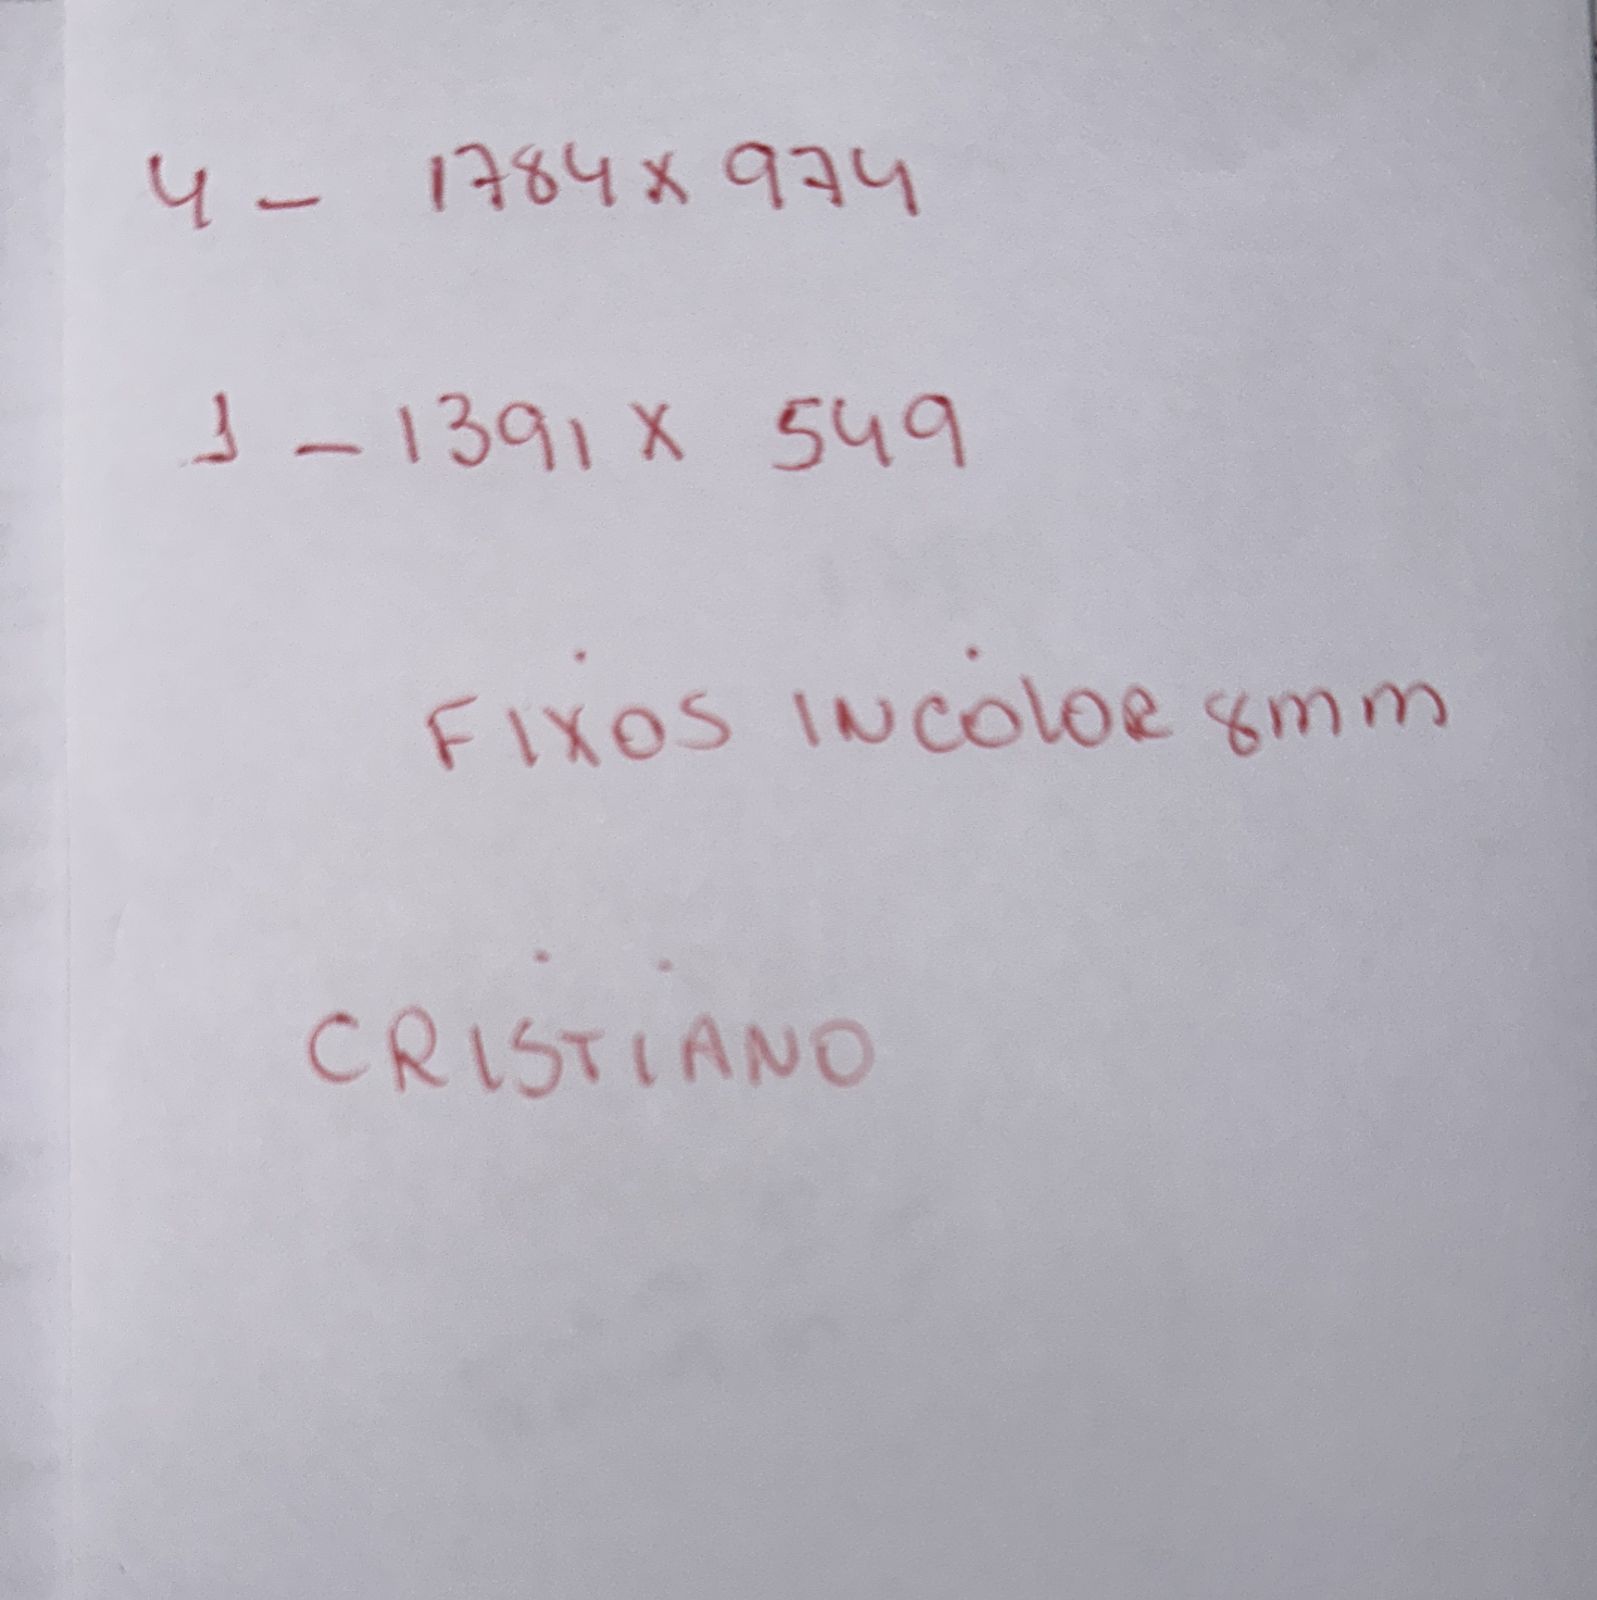 4 - 1784 x 974
1 - 1391 x 549
FIXOS INCOLOR 8mm
CRISTIANO